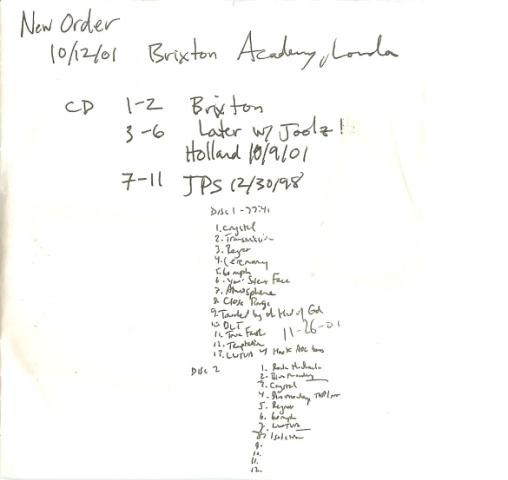 New Order
10/12/01 Brixton Academy, London
CD 1-2 Brixton
3-6 Later w/ Joolz!
Holland 10/9/01
7-11 JPS 12/30/98
Disc 1 - 77:41
1. Crystal
2. Transmission
3. Regret
4. Ceremony
5. 60 mph
6. Your Silent Face
7. Atmosphere
8. Close Range
9. Touched by th Hand of God
10. BLT
11. True Faith 11-26-01
12. Temptation
13. LWTUA w/ Hook
Disc 2
1. Rock
2. Blue Monday
3. Crystal
4. Blue Monday
5. Regret
6. 60 mph
7. LWTUA
8. Isolation
9.
10.
11.
12.